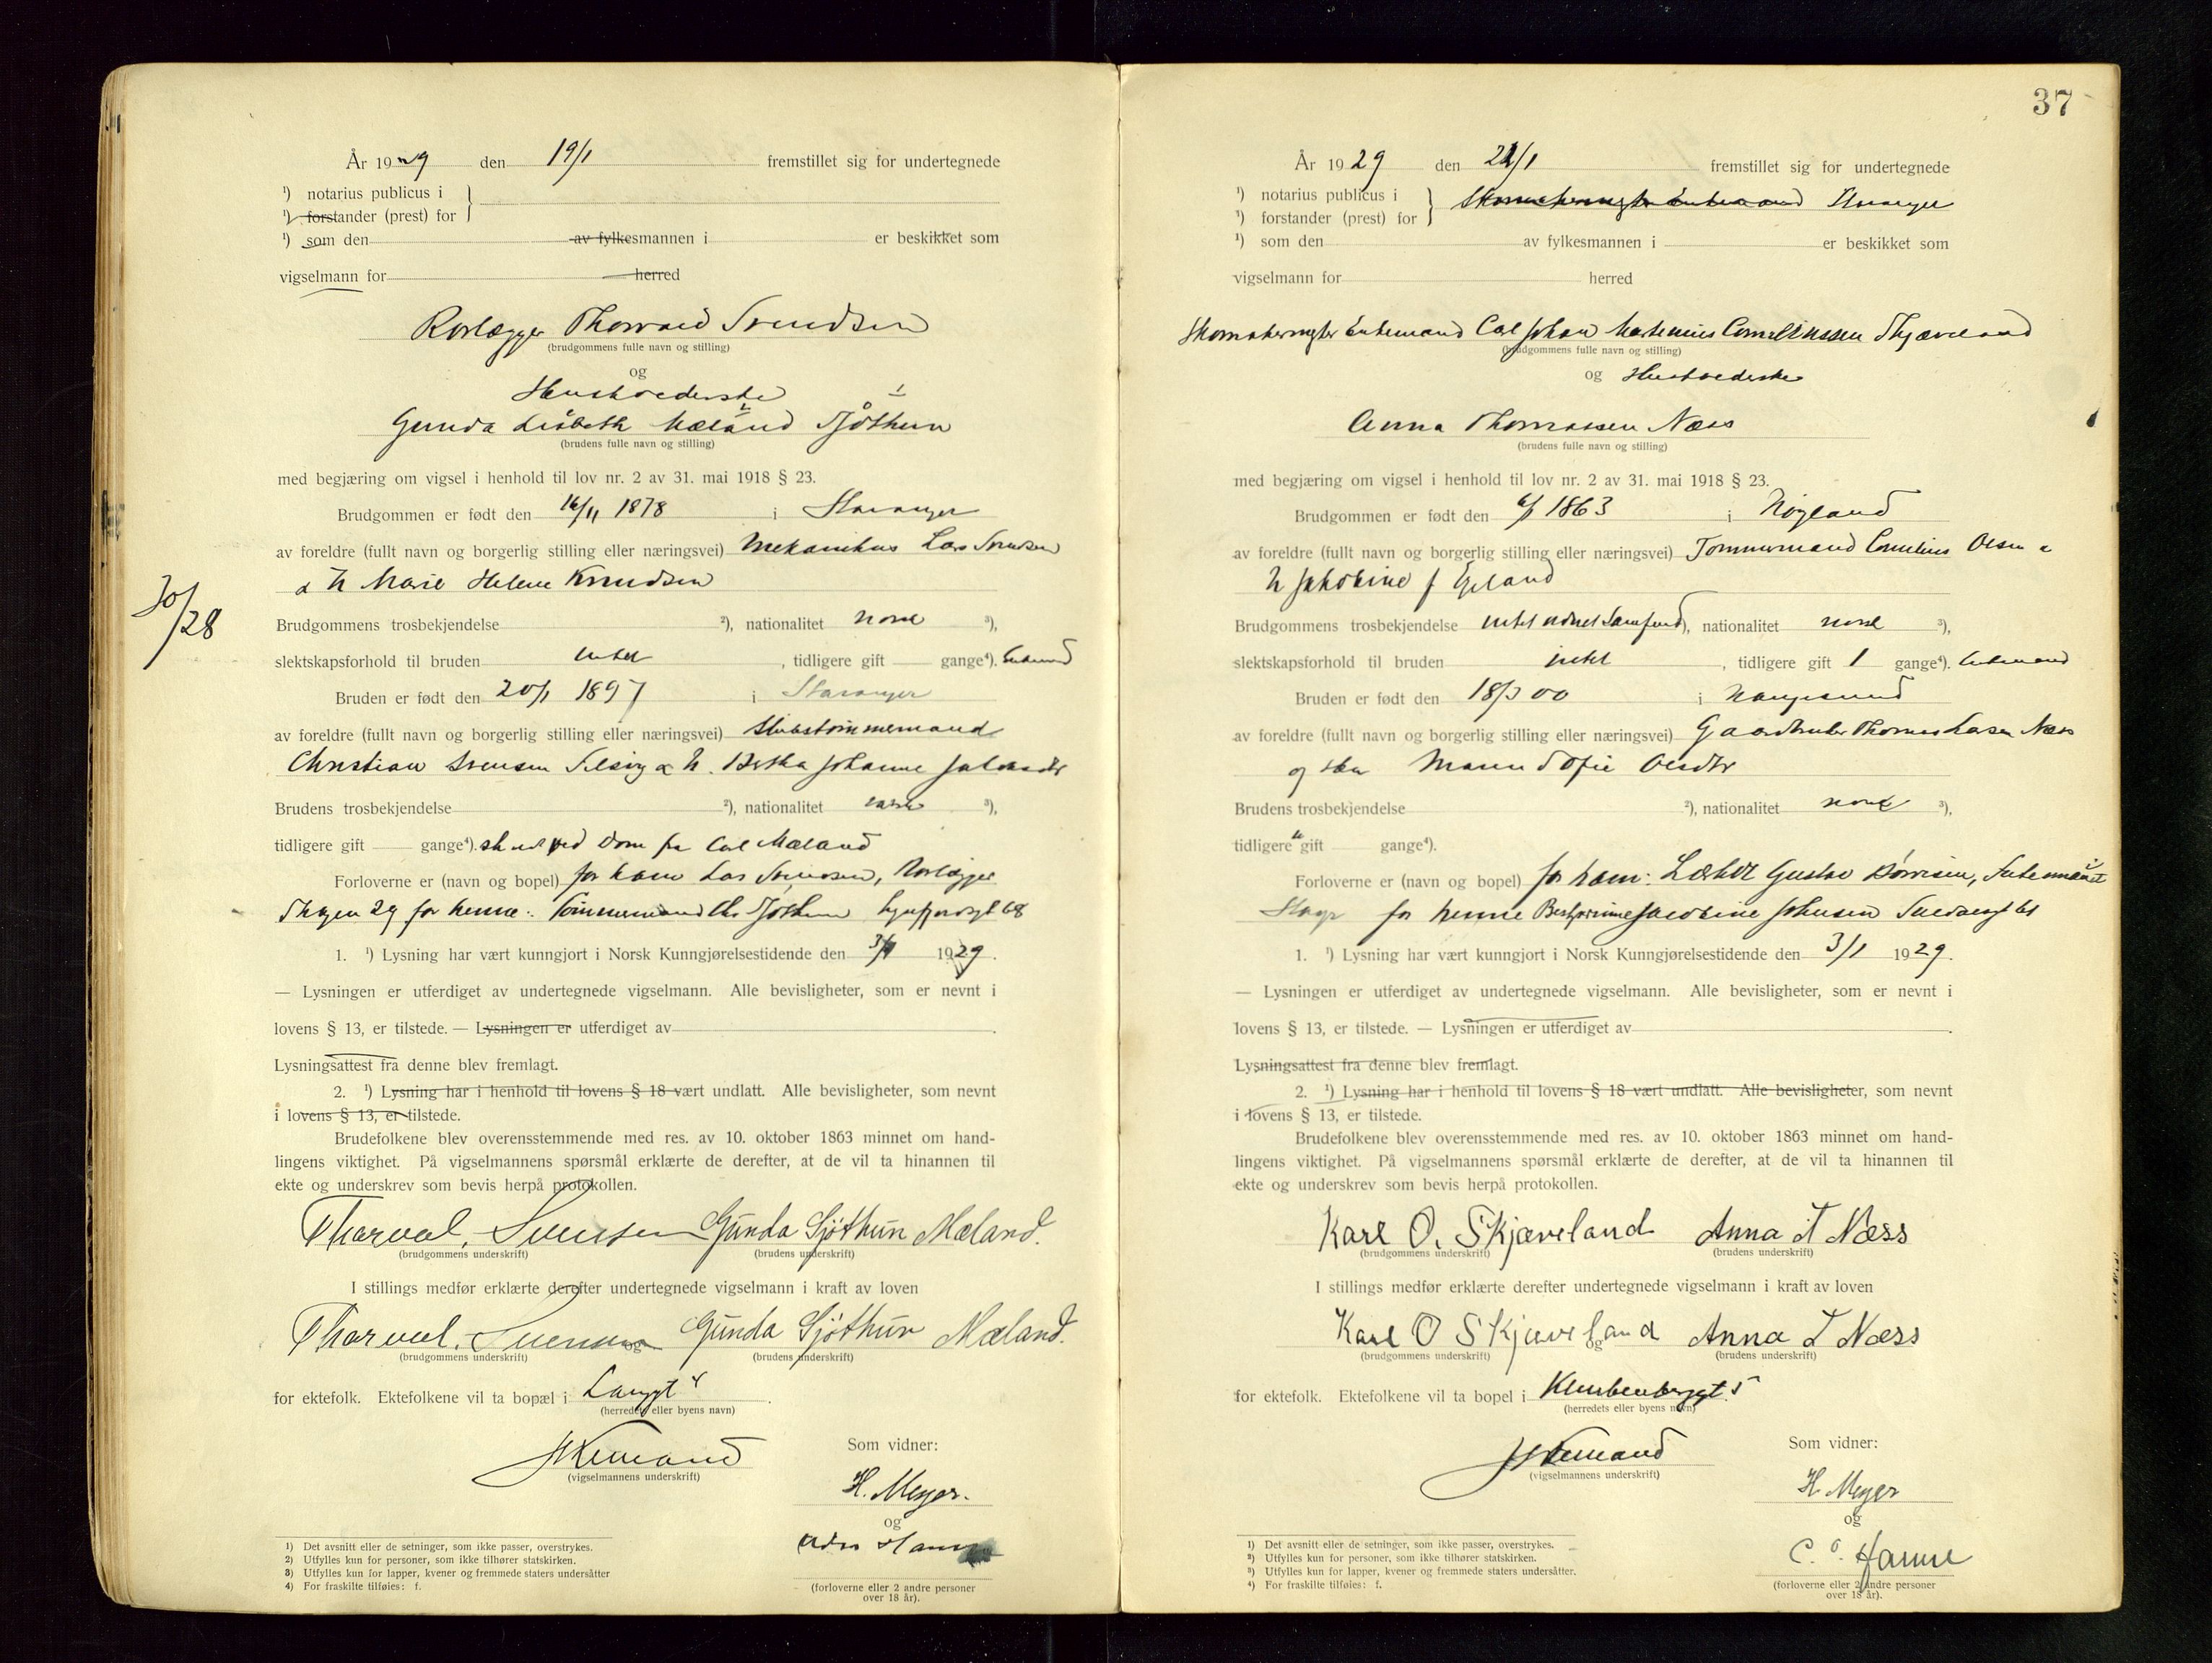 År 1929 den 19/1 fremstillet sig for undertegnede
¹) notarius publicus i
¹) forstander (prest) for
¹) som den av fylkesmannen i er beskikket som
vigselmann for herred
Rørlægger Thorvald Svendsen
(brudgommens fulle navn og stilling)
og
Husbestyrerske
Gunda Lisbeth Mæland Sjøthun
(brudens fulle navn og stilling)
med begjæring om vigsel i henhold til lov nr. 2 av 31. mai 1918 § 23.
Brudgommen er født den 16/11 1878 i Stavanger
av foreldre (fullt navn og borgerlig stilling eller næringsvei) Mekanikus Lars Svendsen
& h Marie Helene Knudsen
30/28
Brudgommens trosbekjendelse ²), nationalitet norsk ³),
slektskapsforhold til bruden intet , tidligere gift gange⁴). Enkemand
Bruden er født den 20/1 1897 i Stavanger
av foreldre (fullt navn og borgerlig stilling eller næringsvei) Skibstømmermand
Christian Svensen & h. Bertha Johanne
Brudens trosbekjendelse ²), nationalitet norsk ³),
tidligere gift gange⁴). skilt ved Dom fra Carl Mæland
Forloverne er (navn og bopel) for ham Lars Svendsen, Rørlægger
29 for henne: Tømmermand Chr Sjøthun 68
1. ¹) Lysning har vært kunngjort i Norsk Kunngjørelsestidende den 3/1 1929.
— Lysningen er utferdiget av undertegnede vigselmann. Alle bevisligheter, som er nevnt i
lovens § 13, er tilstede. — Lysningen er utferdiget av .
Lysningsattest fra denne blev fremlagt.
2. ¹) Lysning har i henhold til lovens § 18 vært undlatt. Alle bevisligheter, som nevnt
i lovens § 13, er tilstede.
Brudefolkene blev overensstemmende med res. av 10. oktober 1863 minnet om hand-
lingens viktighet. På vigselmannens spørsmål erklærte de derefter, at de vil ta hinannen til
ekte og underskrev som bevis herpå protokollen.
Tharval. Svensen Gunda Sjøthun Mæland.
(brudgommens underskrift) (brudens underskrift)
I stillings medfør erklærte derefter undertegnede vigselmann i kraft av loven
Tharval. Svensen og Gunda Sjøthun Mæland.
(brudgommens underskrift) (brudens underskrift)
for ektefolk. Ektefolkene vil ta bopæl i Langgt 4 .
(herredets eller byens navn)
(vigselmannens underskrift)
Som vidner:
H. Meyer.
og
(forloverne eller 2 andre personer
over 18 år).
1) Det avsnitt eller de setninger, som ikke passer, overstrykes.
2) Utfylles kun for personer, som ikke tilhører statskirken.
3) Utfylles kun for lapper, kvener og fremmede staters undersåtter
4) For fraskilte tilføies: f.
37
År 1929 den 22/1 fremstillet sig for undertegnede
¹) notarius publicus i
¹) forstander (prest) for Stavanger
¹) som den av fylkesmannen i er beskikket som
vigselmann for herred
Skomakermester Enkemand Carl Johan Martinius Corneliussen Skjæveland
(brudgommens fulle navn og stilling)
og Husbestyrerske
Anna Thomassen Næss
(brudens fulle navn og stilling)
med begjæring om vigsel i henhold til lov nr. 2 av 31. mai 1918 § 23.
Brudgommen er født den 1863 i Høyland
av foreldre (fullt navn og borgerlig stilling eller næringsvei) Tømmermand Cornelius Olsen &
h Jakobine f Egeland
Brudgommens trosbekjendelse intet ordnet Samfund ²), nationalitet norsk ³),
slektskapsforhold til bruden intet , tidligere gift 1 gange⁴). Enkemand
Bruden er født den 18/3 00 i Haugesund
av foreldre (fullt navn og borgerlig stilling eller næringsvei) Gaardbruker Thomas Larsen Næss
og Hu Sofie Olsdtr
Brudens trosbekjendelse ²), nationalitet norsk ³),
tidligere gift gange⁴).
Forloverne er (navn og bopel) for ham: Gustav
for henne Johnsen
1. ¹) Lysning har vært kunngjort i Norsk Kunngjørelsestidende den 3/1 1929.
— Lysningen er utferdiget av undertegnede vigselmann. Alle bevisligheter, som er nevnt i
lovens § 13, er tilstede. — Lysningen er utferdiget av .
Lysningsattest fra denne blev fremlagt.
2. ¹) Lysning har i henhold til lovens § 18 vært undlatt. Alle bevisligheter, som nevnt
i lovens § 13, er tilstede.
Brudefolkene blev overensstemmende med res. av 10. oktober 1863 minnet om hand-
lingens viktighet. På vigselmannens spørsmål erklærte de derefter, at de vil ta hinannen til
ekte og underskrev som bevis herpå protokollen.
Karl O. Skjæveland Anna T Næss
(brudgommens underskrift) (brudens underskrift)
I stillings medfør erklærte derefter undertegnede vigselmann i kraft av loven
Karl O Skjæveland og Anna T Næss
(brudgommens underskrift) (brudens underskrift)
for ektefolk. Ektefolkene vil ta bopel i Klubbenbergt. 5
(herredets eller byens navn)
(vigselmannens underskrift)
Som vidner:
H Meyer
og
(forloverne eller 2 andre personer
over 18 år).
¹) Det avsnitt eller de setninger, som ikke passer, overstrykes.
²) Utfylles kun for personer, som ikke tilhører statskirken.
³) Utfylles kun for lapper, kvener og fremmede staters undersåtter.
⁴) For fraskilte tilføies: f.